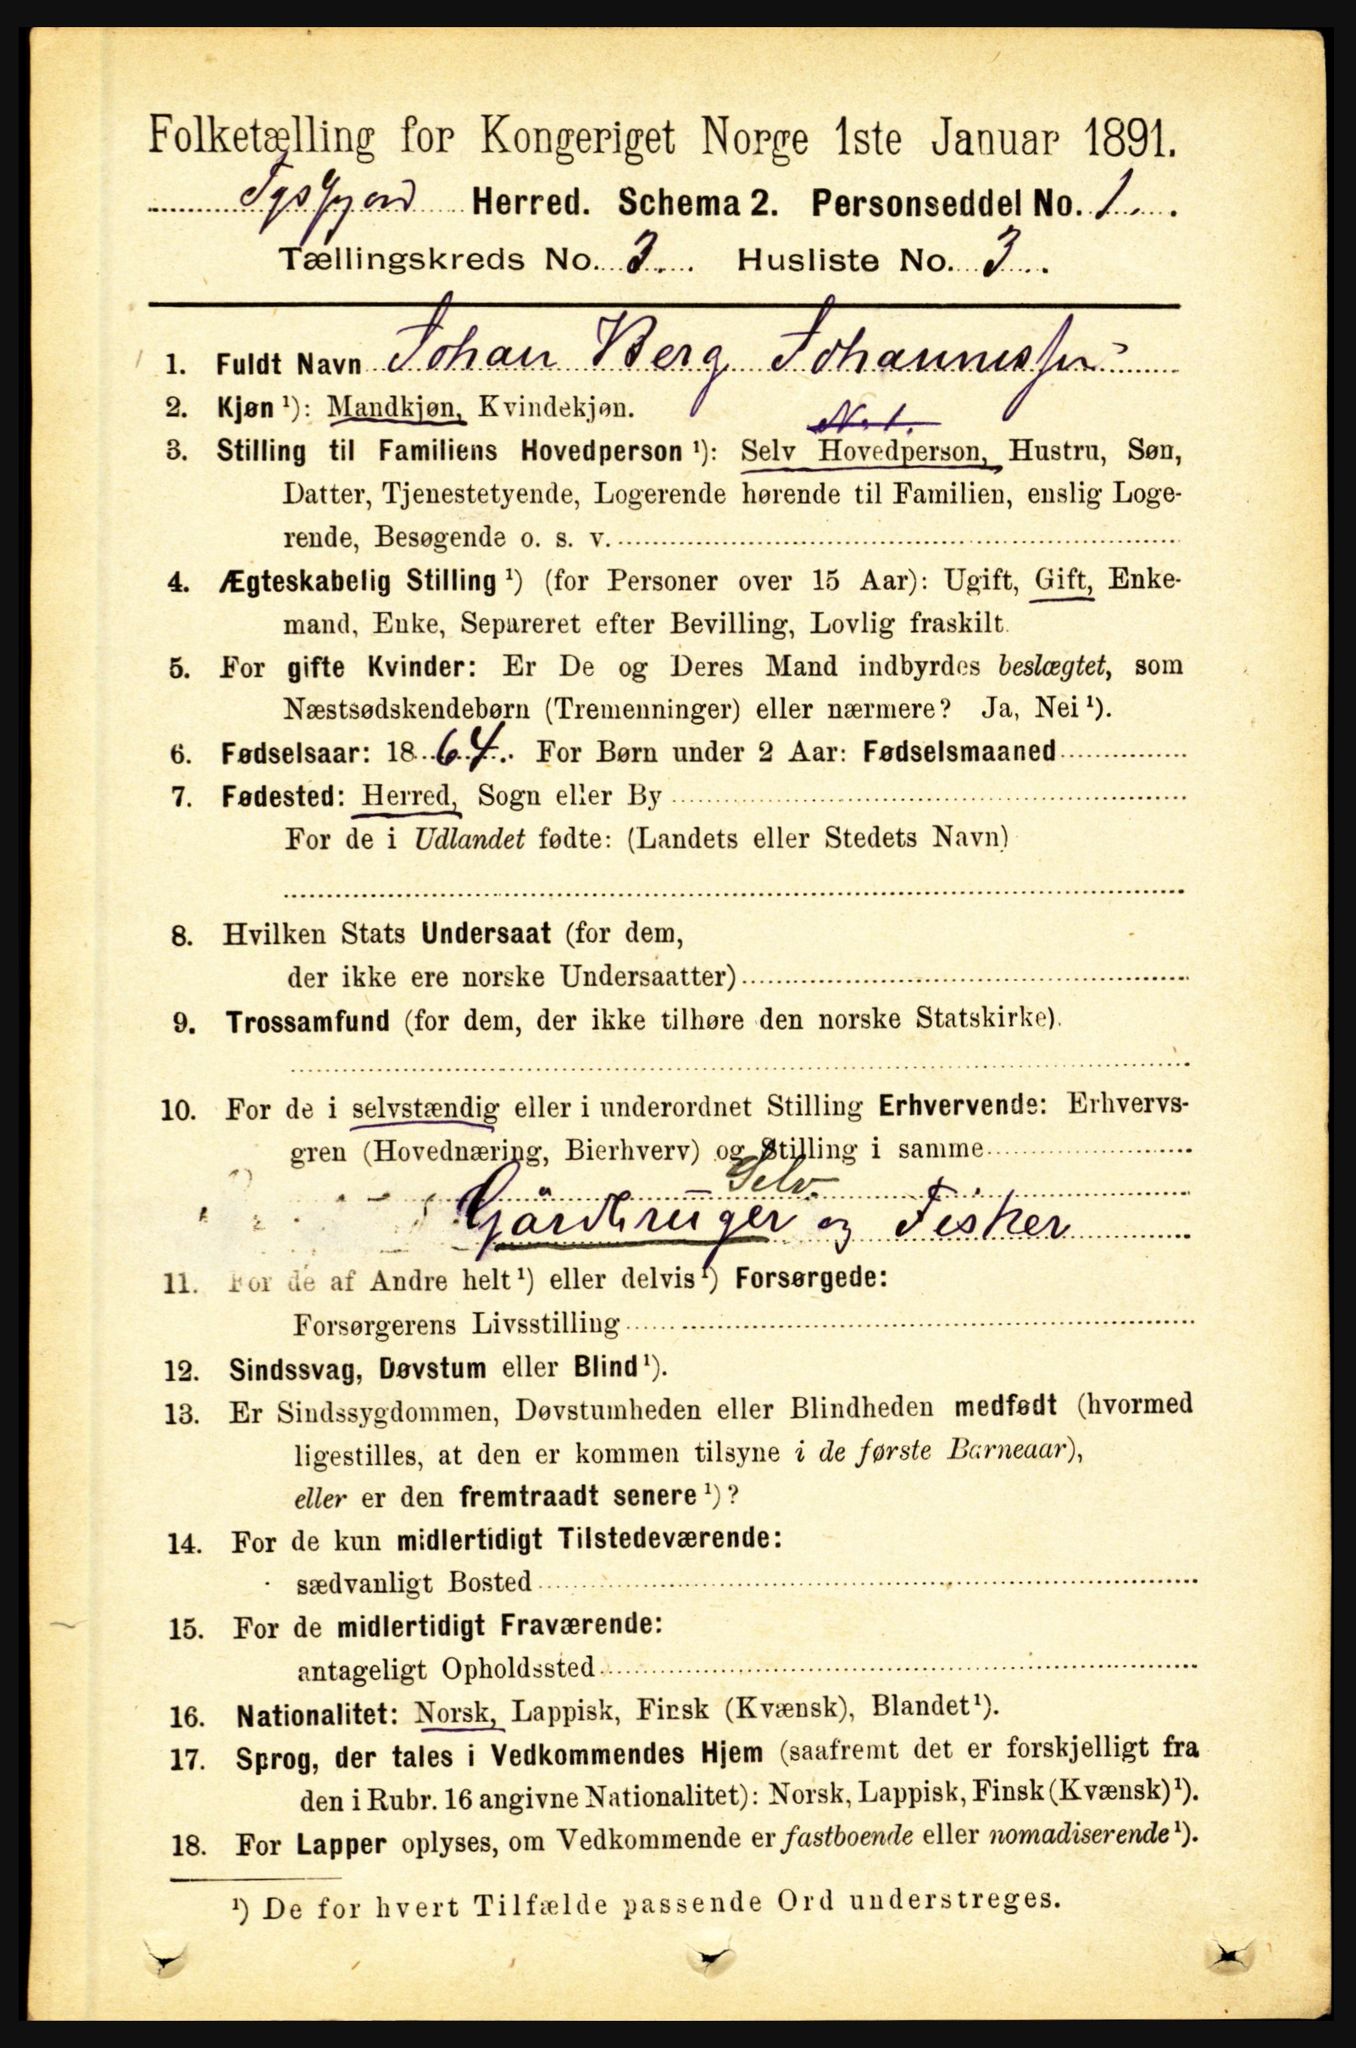 Folketælling for Kongeriget Norge 1ste Januar 1891.
Tysfjord Herred. Schema 2. Personseddel No. 1.
Tællingskreds No. 3. Husliste No. 3.
1. Fuldt Navn Johan Berg Johannessen
2. Kjøn ¹): Mandkjøn, Kvindekjøn.
No 1.
3. Stilling til Familiens Hovedperson ¹): Selv Hovedperson, Hustru, Søn,
Datter, Tjenestetyende, Logerende hørende til Familien, enslig Loge-
rende, Besøgende o. s. v.
4. Ægteskabelig Stilling ¹) (for Personer over 15 Aar): Ugift, Gift, Enke-
mand, Enke, Separeret efter Bevilling, Lovlig fraskilt.
5. For gifte Kvinder: Er De og Deres Mand indbyrdes beslægtet, som
Næstsødskendebørn (Tremenninger) eller nærmere? Ja, Nei ¹).
6. Fødselsaar: 1864. For Børn under 2 Aar: Fødselsmaaned
7. Fødested: Herred, Sogn eller By
For de i Udlandet fødte: (Landets eller Stedets Navn)
8. Hvilken Stats Undersaat (for dem,
der ikke ere norske Undersaatter)
9. Trossamfund (for dem, der ikke tilhøre den norske Statskirke).
10. For de i selvstændig eller i underordnet Stilling Erhvervende: Erhvervs-
gren (Hovednæring, Bierhverv) og Stilling i samme
Selv.
Gårdbruger og Fisker
11. For de af Andre helt ¹) eller delvis ¹) Forsørgede:
Forsørgerens Livsstilling
12. Sindssvag, Døvstum eller Blind ¹).
13. Er Sindssygdommen, Døvstumheden eller Blindheden medfødt (hvormed
ligestilles, at den er kommen tilsyne i de første Barneaar),
eller er den fremtraadt senere ¹)?
14. For de kun midlertidigt Tilstedeværende:
sædvanligt Bosted
15. For de midlertidigt Fraværende:
antageligt Opholdssted
16. Nationalitet: Norsk, Lappisk, Finsk (Kvænsk), Blandet ¹).
17. Sprog, der tales i Vedkommendes Hjem (saafremt det er forskjelligt fra
den i Rubr. 16 angivne Nationalitet): Norsk, Lappisk, Finsk (Kvænsk) ¹).
18. For Lapper oplyses, om Vedkommende er fastboende eller nomadiserende ¹).
¹) De for hvert Tilfælde passende Ord understreges.